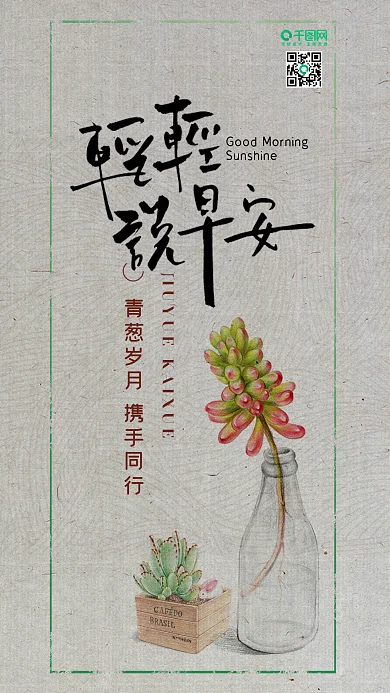 千图网
Good Morning
Sunshine
輕輕
説早安
JIUYUE KAIXUE
青葱岁月 携手同行
CAFEDO
BRASIL